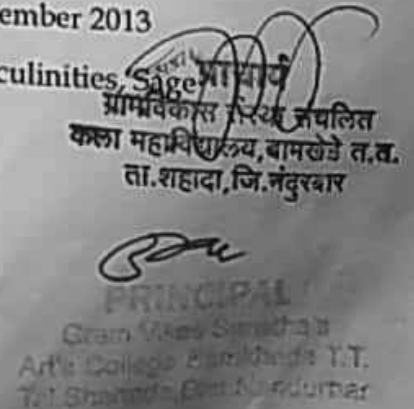 ember 2013
culinities, Sage
प्राचार्य
ग्रामविकास संस्था संचलित
कला महाविद्यालय, बामखेडे त.त.
ता.शहादा, जि.नंदुरबार
PRINCIPAL
Gram Vikas Sanstha's
Art's College Bamkheda T.T.
Tal.Shahada, Dist.Nandurbar